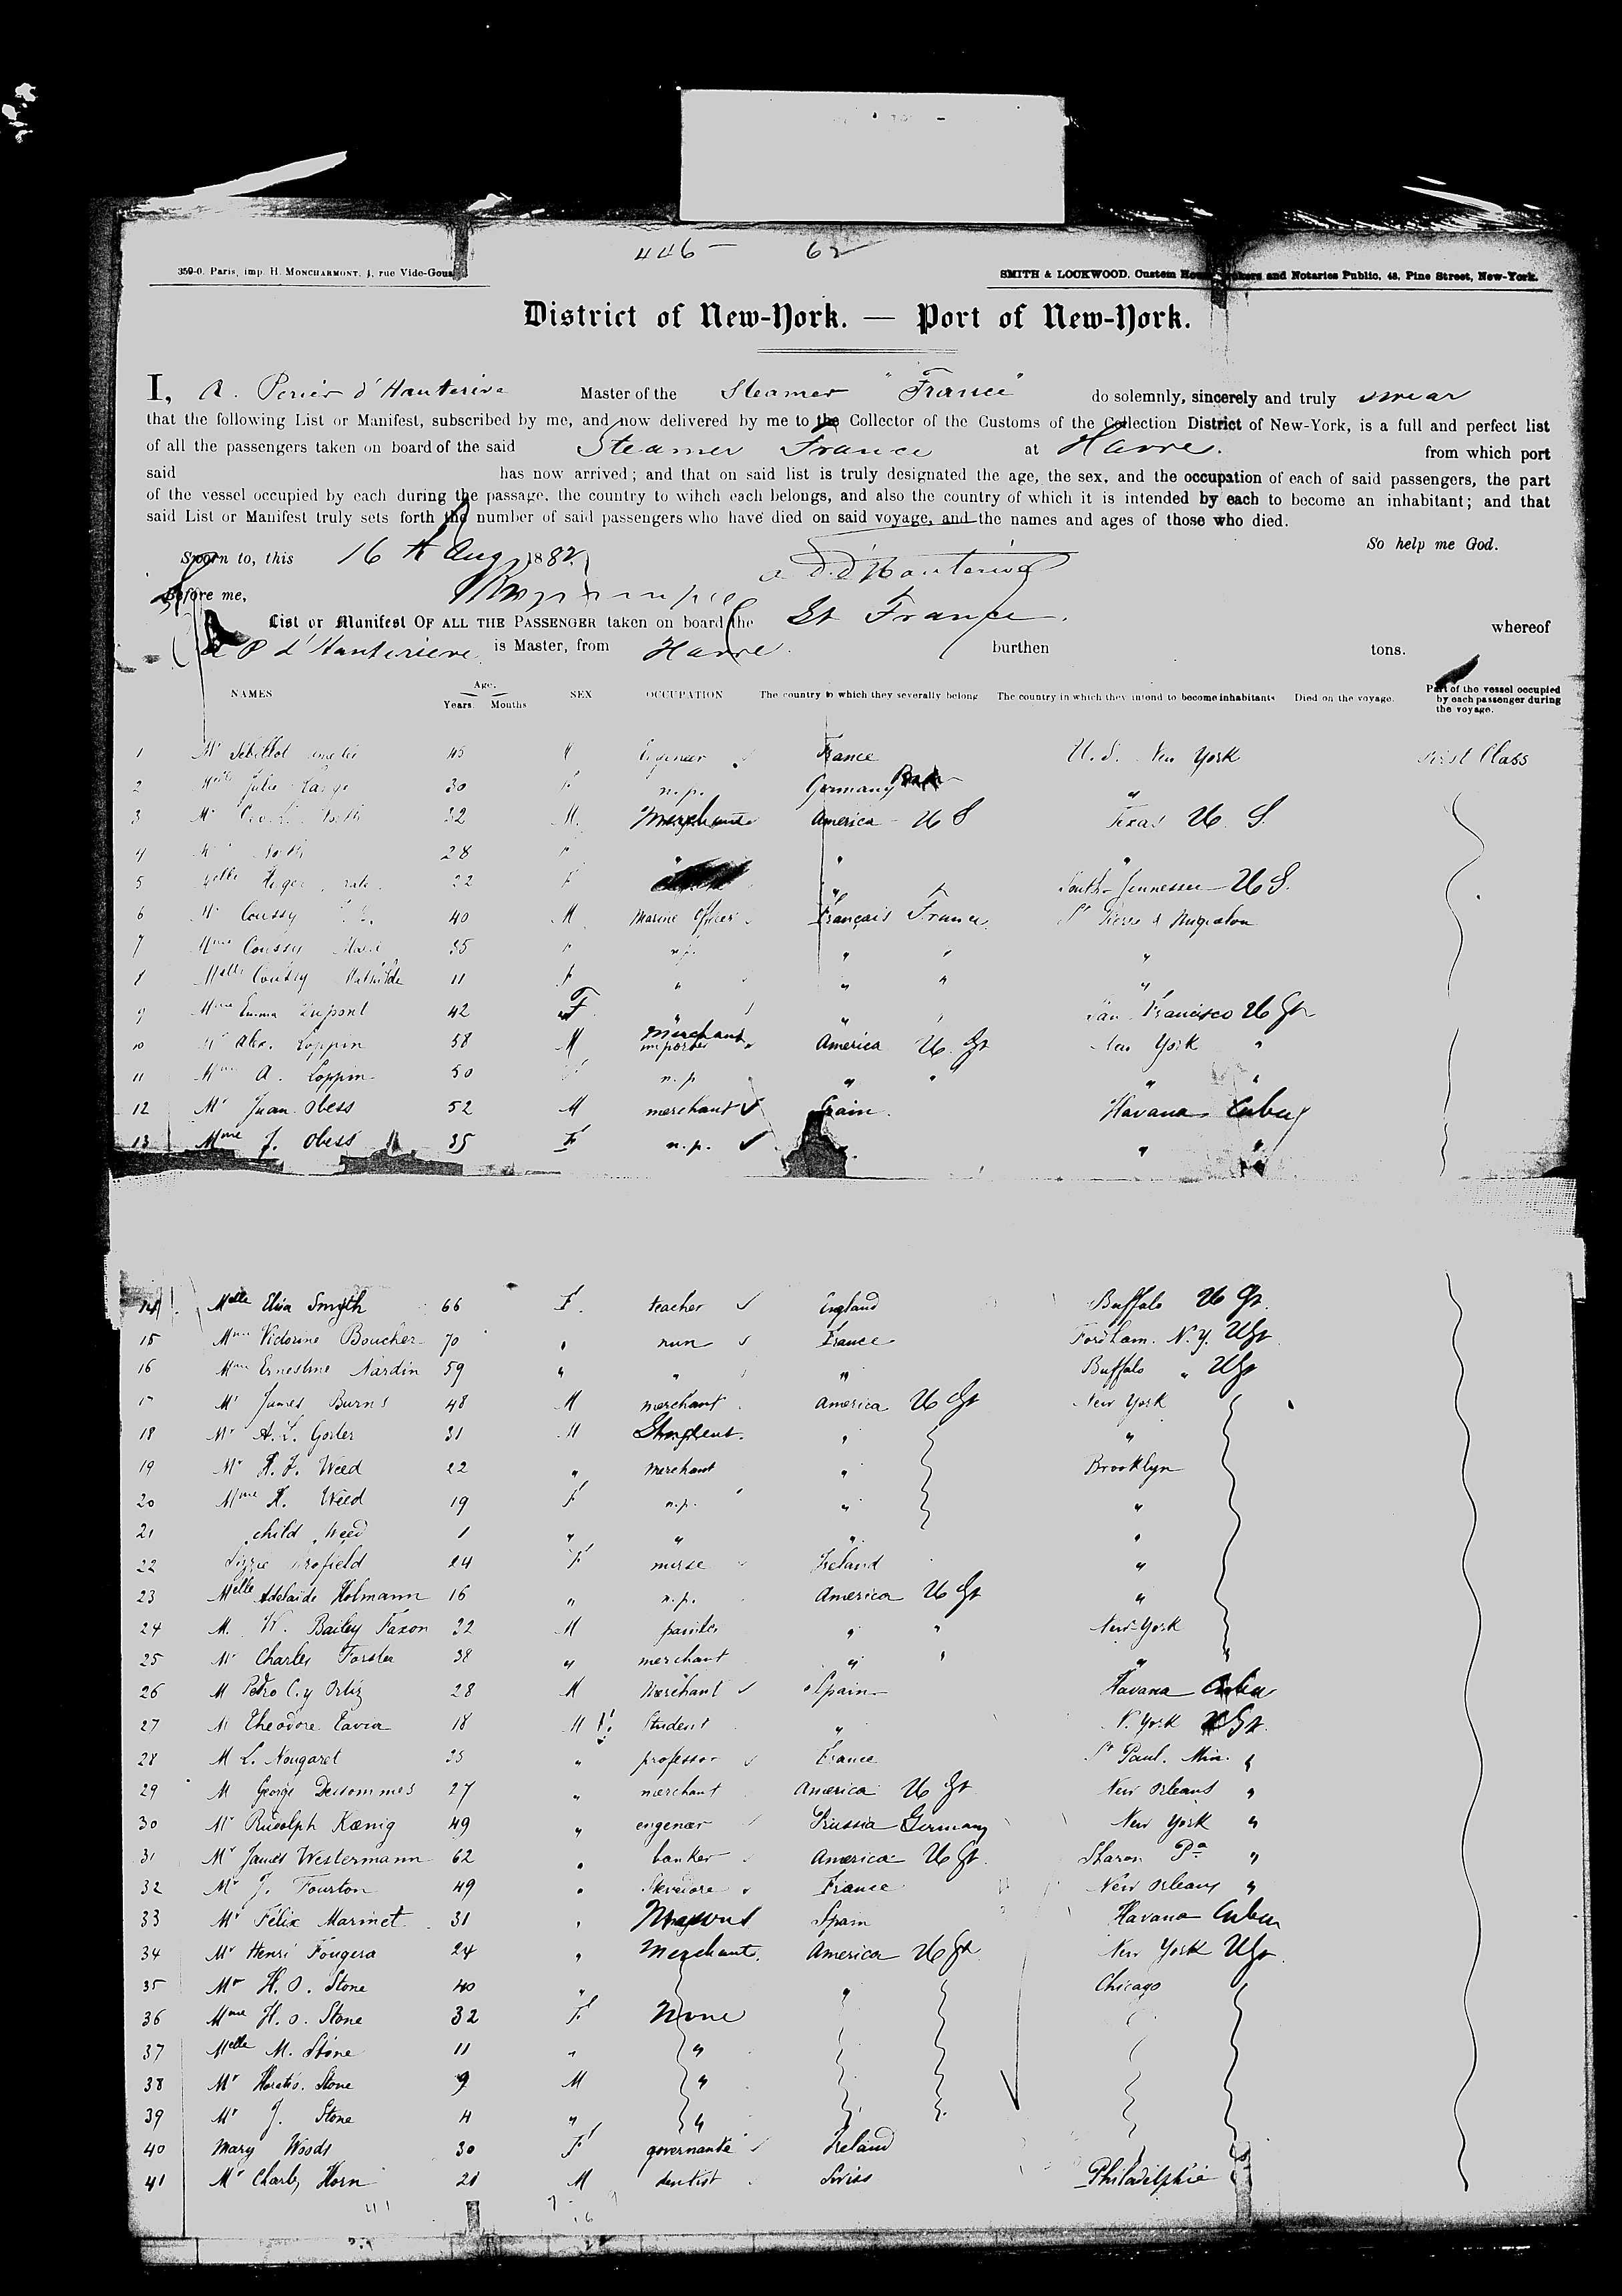 446 - 62
359-0. Paris, imp. H. MONCHARMONT. 1, rue Vide-Gous
SMITH & LOCKWOOD, Custom House Brokers and Notaries Public, 48, Pine Street, New-York.
District of New-York. — Port of New-York.
I, A. Perier d'Hauterive Master of the Steamer "France" do solemnly, sincerely and truly swear
that the following List or Manifest, subscribed by me, and now delivered by me to the Collector of the Customs of the Collection District of New-York, is a full and perfect list
of all the passengers taken on board of the said Steamer France at Havre. from which port
said has now arrived; and that on said list is truly designated the age, the sex, and the occupation of each of said passengers, the part
of the vessel occupied by each during the passage, the country to wihch each belongs, and also the country of which it is intended by each to become an inhabitant; and that
said List or Manifest truly sets forth the number of said passengers who have died on said voyage, and the names and ages of those who died.
So help me God.
Sworn to, this 16th Aug 1882.
a P. d'Hauterive
Before me,
List or Manifest OF ALL THE PASSENGER taken on board the St France. whereof
A P d'Hauterive is Master, from Havre. burthen tons.
NAMES Age. Years. Months SEX OCCUPATION The country to which they severally belong The country in which they intend to become inhabitants Died on the voyage. Part of the vessel occupied by each passenger during the voyage.
1 Mr 45 Engineer France U.S. New York First Class
2 Melle Julie 30 F n.p. Germany "
3 Mr 32 M. Merchant America - U S Texas U. S.
4 28 F " " "
5 Melle 22 F " South-Tennessee U S.
6 Mr Coussy 40 M Marine Officer Français France St Pierre & Miquelon
7 Mme Coussy 35 F n.p. " " "
8 Melle Coussy Mathilde 11 F " " " "
9 Mme Emma Dupont 42 F " San Francisco U St
10 Mr Alex. Loppin 58 M Merchant importer America U. St New York "
11 Mme A. Loppin 50 n.p. " " " "
12 Mr Juan Obess 52 M merchant Spain. Havana Cuba
13 Mme J. Obess 35 F n.p. " "
14 Melle Elisa Smyth 66 F. teacher England Buffalo U St.
15 Mme Victorine Boucher 70 " nun France Fordham. N.Y. USt
16 Mme Ernestine Nardin 59 " " " Buffalo " USt
17 Mr James Burns 48 M merchant America U St New York
18 Mr A. L. 31 M " "
19 Mr H. J. Weed 22 " Merchant " Brooklyn
20 Mme H. Weed 19 F n.p. " "
21 child Weed 1 " " " "
22 Lizzie 24 F nurse Ireland "
23 Melle Adelaïde Holmann 16 " n.p. America U St "
24 M. W. Bailey Faxon 22 M " " New-York
25 Mr Charles Forster 38 " merchant " " "
26 M Pedro C. y Ortiz 28 M Merchant Spain Havana Cuba
27 M Theodore 18 M Student " N. York U St.
28 M L. Nougaret 25 " professor France St Paul. Min. "
29 M George Dessommes 27 " merchant America U St New Orleans "
30 Mr Rudolph Kœnig 49 " engenær Prussia Germany New York "
31 Mr James Westermann 62 " banker America U St. Sharon Pa "
32 Mr J. Tourton 49 " Stevedore France New Orleans "
33 Mr Felix Marinet 31 " Spain Havana Cuba
34 Mr Henri Fougera 24 " Merchant. America U St New York USt
35 Mr H. O. Stone 40 " " Chicago
36 Mme H. O. Stone 32 F. None
37 Melle M. Stone 11 " "
38 Mr Horatio. Stone 9 M "
39 Mr J. Stone 4 " "
40 Mary Woods 30 F governante Ireland
41 Mr Charles Horn 21 M dentist Swiss Philadelphie